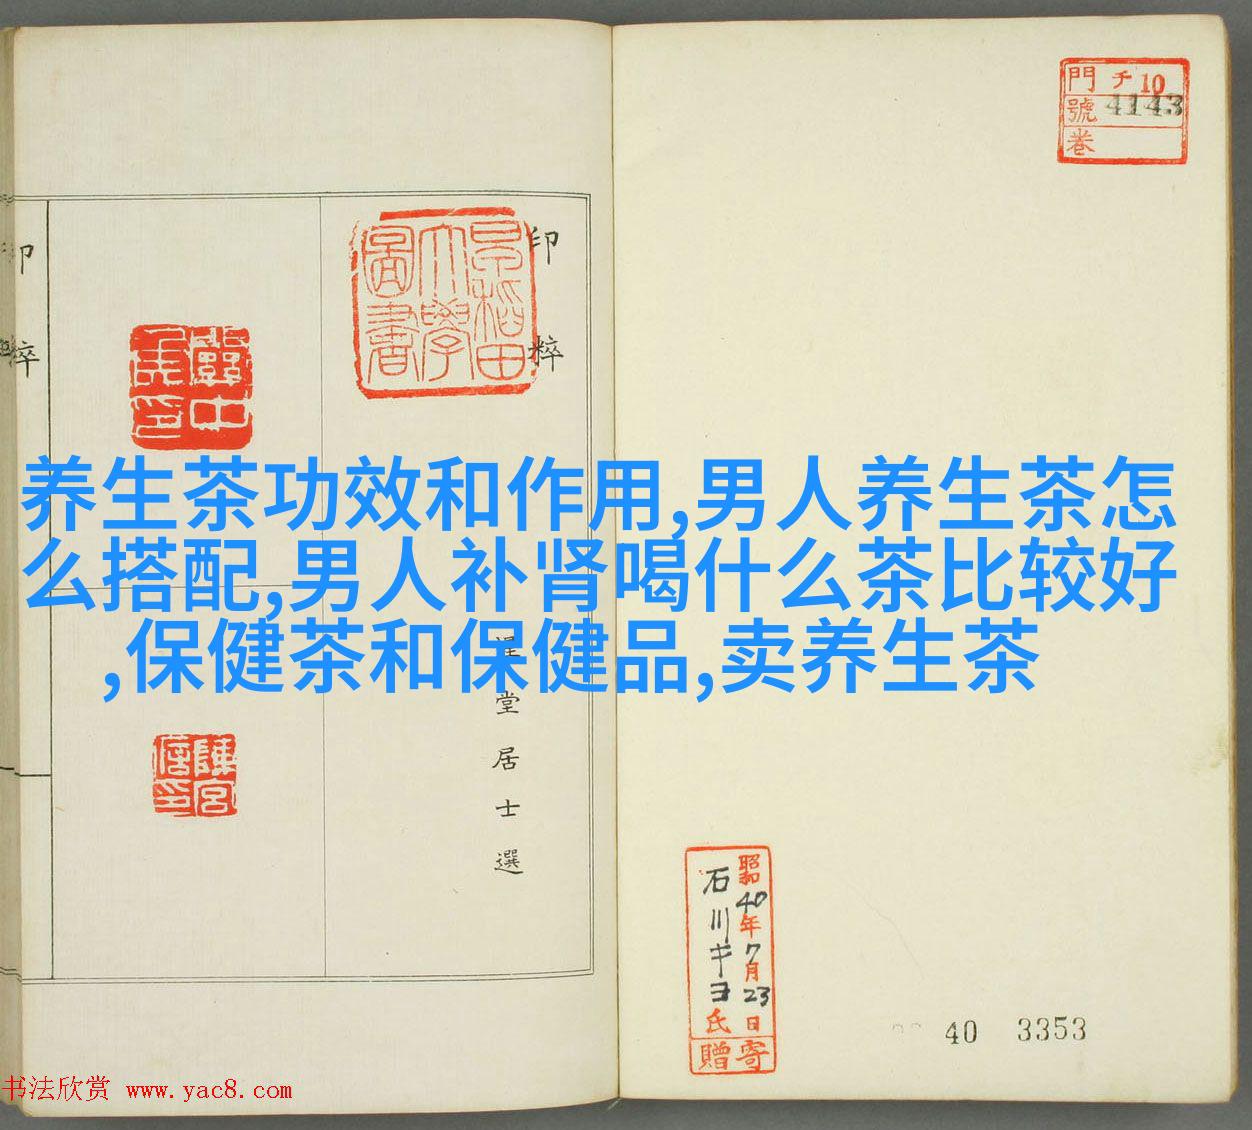 養生茶功效和作用,男人养生茶怎
么搭配,男人补肾喝什么茶比较好
,保健茶和保健品,卖养生茶
門 チ 10
號 4143
巻
印粹
早稻田
大學
圖書
印粹
堂居士選
陳宮
信印
昭和40年7月23日
石川キヨ氏
寄贈
40 3353
书法欣赏 www.yac8.com